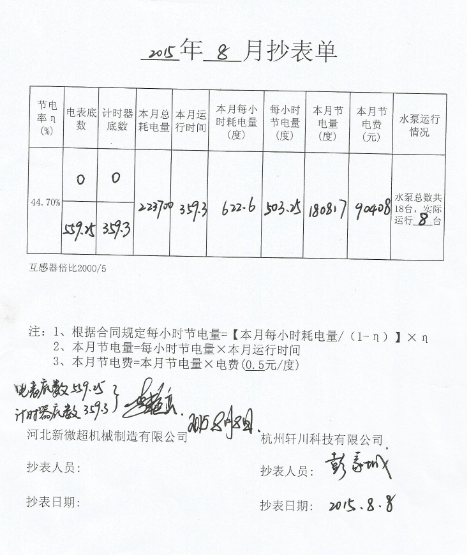 2015年 8 月抄表单
节电率η(%) 电表底数 计时器底数 本月总耗电量 本月运行时间 本月每小时耗电量(度) 每小时节电量(度) 本月节电量(度) 本月节电费(元) 水泵运行情况
44.70% 0 0 223700 359.3 622.6 503.25 180817 90408 水泵总数共18台，实际运行 8 台
559.25 359.3
互感器倍比2000/5
注：1、根据合同规定每小时节电量=【本月每小时耗电量/(1-η)】×η
2、本月节电量=每小时节电量×本月运行时间
3、本月节电费=本月节电量×电费(0.5元/度)
电表底数 559.25
计时器底数 359.3
2015年8月8日.
河北新微超机械制造有限公司 杭州轩川科技有限公司
抄表人员: 抄表人员:
抄表日期: 抄表日期: 2015.8.8